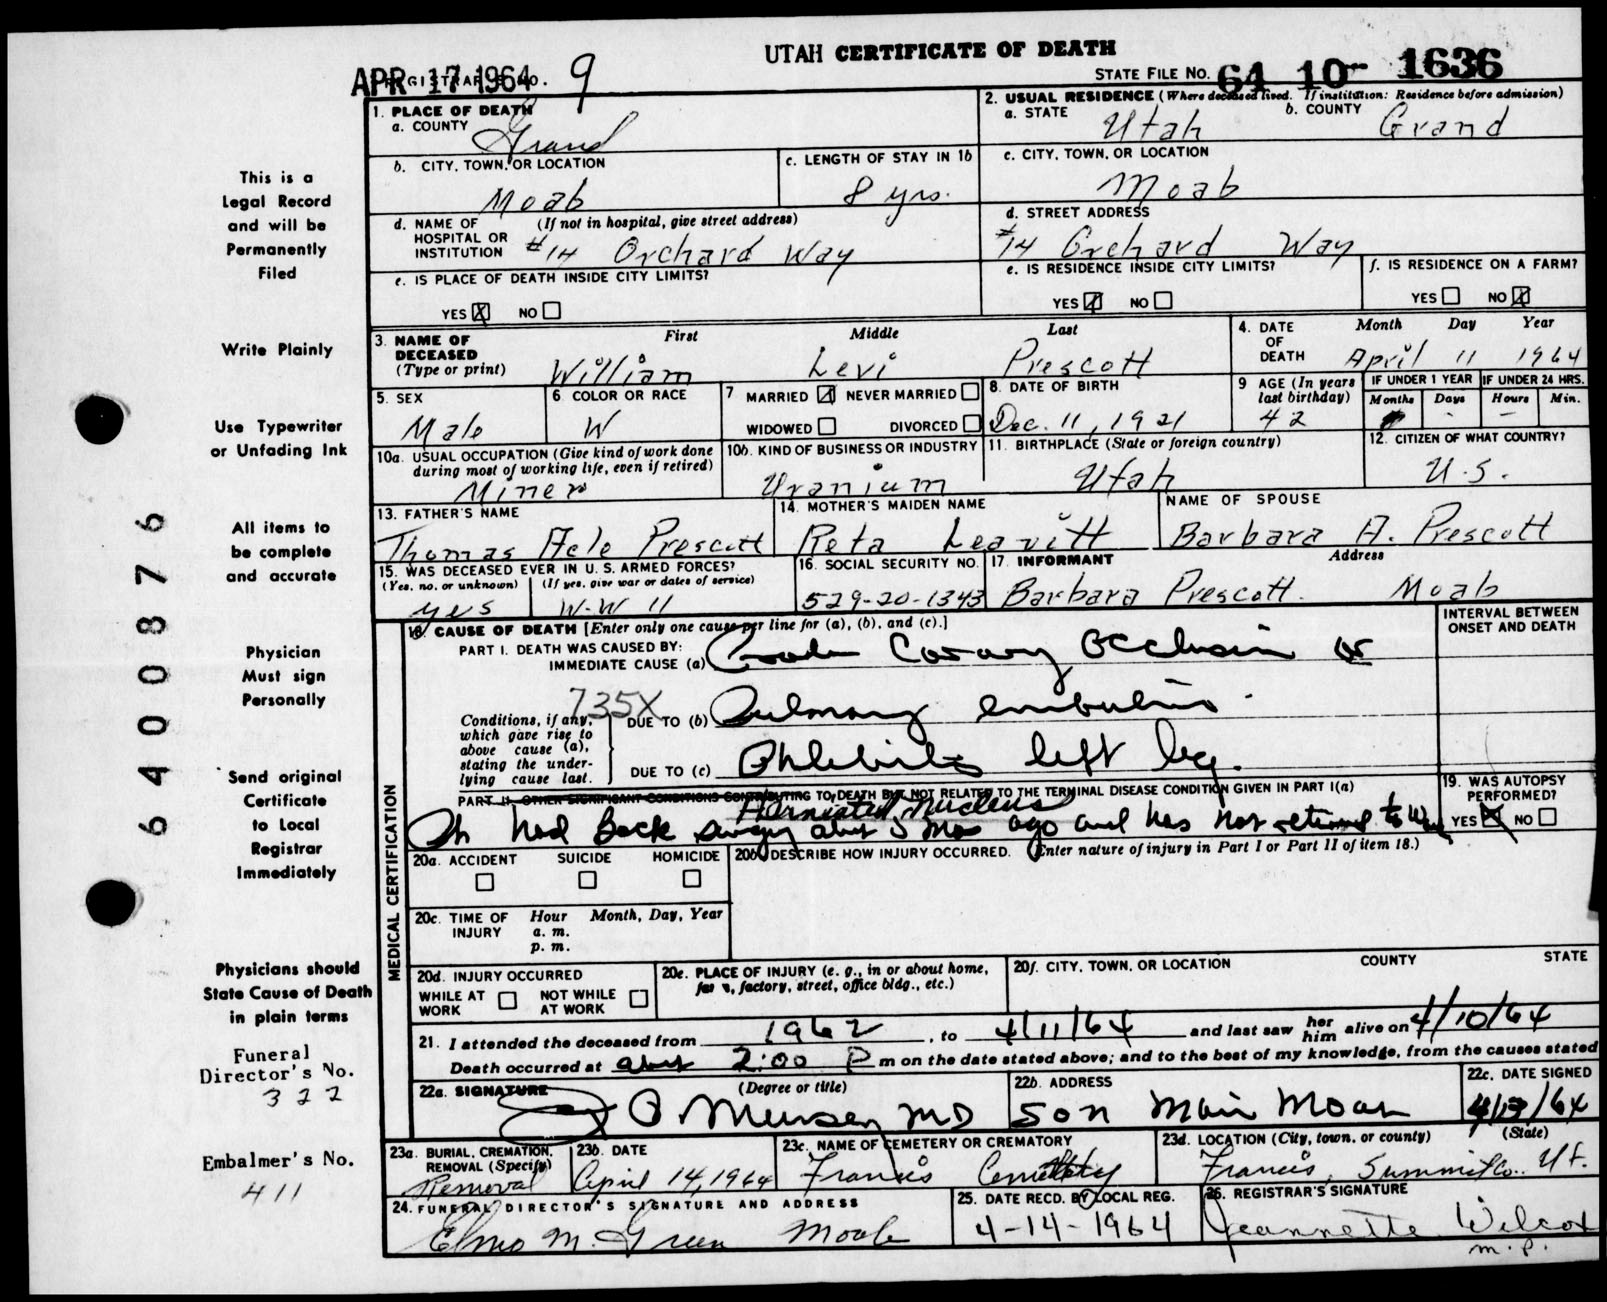 UTAH CERTIFICATE OF DEATH
APR 17 1964 REGISTRAR'S NO. 9
STATE FILE NO. 64 10 1636
1. PLACE OF DEATH
a. COUNTY
Grand
2. USUAL RESIDENCE (Where deceased lived. If institution: Residence before admission)
a. STATE Utah b. COUNTY Grand
b. CITY, TOWN, OR LOCATION
Moab
c. LENGTH OF STAY IN 1b
8 yrs.
c. CITY, TOWN, OR LOCATION
Moab
d. NAME OF HOSPITAL OR INSTITUTION (If not in hospital, give street address)
#14 Orchard Way
d. STREET ADDRESS
#14 Orchard Way
e. IS PLACE OF DEATH INSIDE CITY LIMITS?
YES X NO
e. IS RESIDENCE INSIDE CITY LIMITS?
YES X NO
f. IS RESIDENCE ON A FARM?
YES NO X
3. NAME OF DECEASED (Type or print)
First Middle Last
William Levi Prescott
4. DATE OF DEATH
Month Day Year
April 11 1964
5. SEX
Male
6. COLOR OR RACE
W
7 MARRIED X NEVER MARRIED
WIDOWED DIVORCED
8. DATE OF BIRTH
Dec. 11, 1921
9 AGE (In years last birthday)
42
IF UNDER 1 YEAR IF UNDER 24 HRS.
Months Days Hours Min.
10a. USUAL OCCUPATION (Give kind of work done during most of working life, even if retired)
Miner
10b. KIND OF BUSINESS OR INDUSTRY
Uranium
11. BIRTHPLACE (State or foreign country)
Utah
12. CITIZEN OF WHAT COUNTRY?
U.S.
13. FATHER'S NAME
Thomas Acle Prescott
14. MOTHER'S MAIDEN NAME
Reta Leavitt
NAME OF SPOUSE
Barbara A. Prescott
15. WAS DECEASED EVER IN U.S. ARMED FORCES?
(Yes, no, or unknown) (If yes, give war or dates of service)
yes W-W 11
16. SOCIAL SECURITY NO.
529-20-1343
17. INFORMANT Address
Barbara Prescott. Moab
MEDICAL CERTIFICATION
18. CAUSE OF DEATH [Enter only one cause per line for (a), (b), and (c).]
INTERVAL BETWEEN ONSET AND DEATH
PART I. DEATH WAS CAUSED BY:
IMMEDIATE CAUSE (a) Coronary Occlusion or
735X
Conditions, if any, which gave rise to above cause (a), stating the underlying cause last.
DUE TO (b) Pulmonary embolism
DUE TO (c) Phlebitis left leg.
PART II. OTHER SIGNIFICANT CONDITIONS CONTRIBUTING TO DEATH BUT NOT RELATED TO THE TERMINAL DISEASE CONDITION GIVEN IN PART I(a)
Herniated Nucleus
Pt had Back surgery about 5 mos ago and has not returned to work
19. WAS AUTOPSY PERFORMED?
YES X NO
20a. ACCIDENT SUICIDE HOMICIDE
20b. DESCRIBE HOW INJURY OCCURRED. (Enter nature of injury in Part I or Part II of item 18.)
20c. TIME OF INJURY Hour Month, Day, Year
a. m.
p. m.
20d. INJURY OCCURRED
WHILE AT WORK NOT WHILE AT WORK
20e. PLACE OF INJURY (e. g., in or about home, farm, factory, street, office bldg., etc.)
20f. CITY, TOWN, OR LOCATION COUNTY STATE
21. I attended the deceased from 1962, to 4/11/64 and last saw her him alive on 4/10/64
Death occurred at about 2:00 P m on the date stated above; and to the best of my knowledge, from the causes stated
22a. SIGNATURE (Degree or title)
J P Munsey MD
22b. ADDRESS
50 n Main Moab
22c. DATE SIGNED
4/13/64
23a. BURIAL, CREMATION, REMOVAL (Specify)
Removal
23b. DATE
April 14, 1964
23c. NAME OF CEMETERY OR CREMATORY
Francis Cemetery
23d. LOCATION (City, town, or county) (State)
Francis, Summit Co. Ut.
24. FUNERAL DIRECTOR'S SIGNATURE AND ADDRESS
Elmo M. Green Moab
25. DATE RECD. BY LOCAL REG.
4-14-1964
26. REGISTRAR'S SIGNATURE
Jeannette Wilcox
m.p.
This is a
Legal Record
and will be
Permanently
Filed
Write Plainly
Use Typewriter
or Unfading Ink
All items to
be complete
and accurate
Physician
Must sign
Personally
Send original
Certificate
to Local
Registrar
Immediately
Physicians should
State Cause of Death
in plain terms
Funeral
Director's No.
322
Embalmer's No.
411
6400876